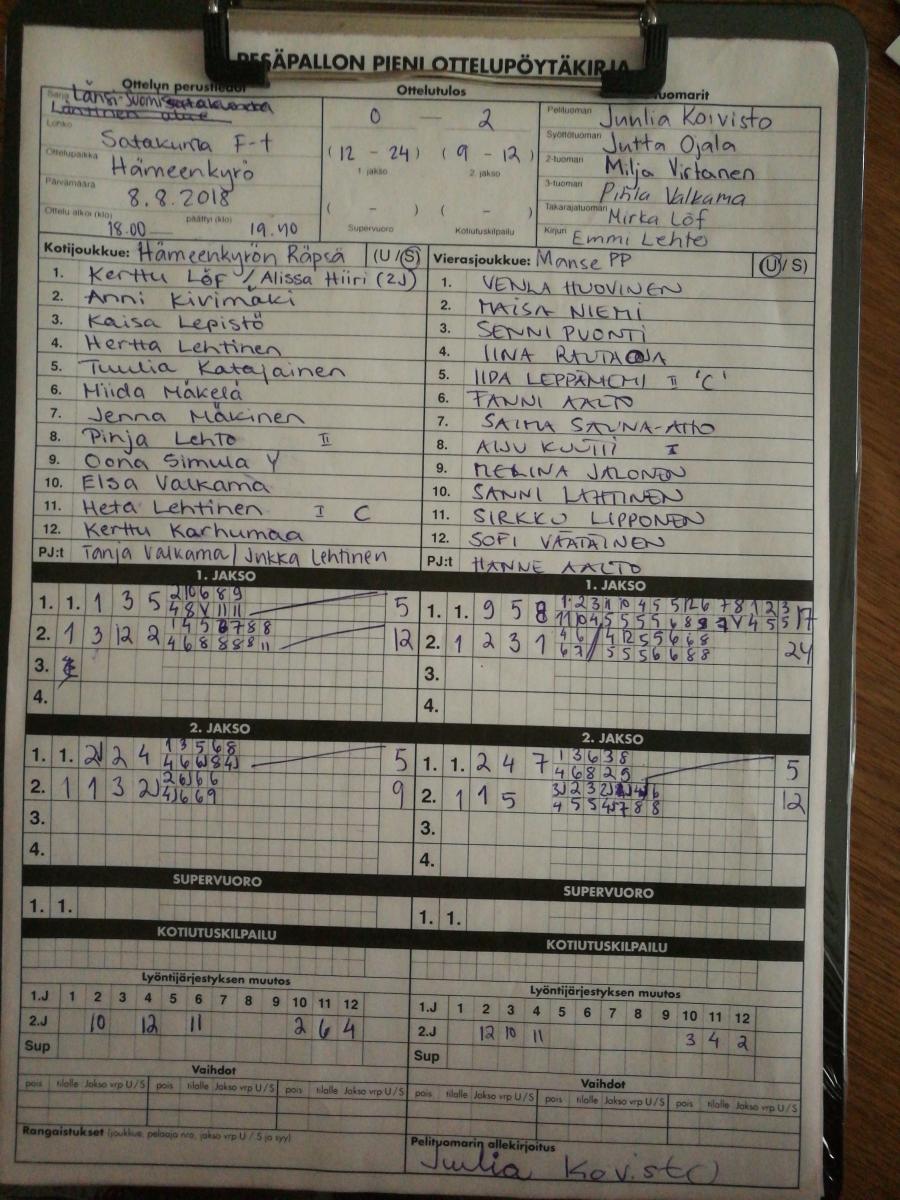 PESÄPALLON PIENI OTTELUPÖYTÄKIRJA
Ottelun perustiedot
Ottelutulos
Sarja Länsi-Suomi
Läntinen alue
Lohko
Satakunta F-t
Ottelupaikka
Hämeenkyrö
Päivämäärä
8.8.2018
Ottelu alkoi (klo) päättyi (klo)
18.00 19.40
0 - 2
(12 - 24) (9 - 12)
1 jakso 2. jakso
( - ) ( - )
Supervuoro Kotiutuskilpailu
Pelituomari Juulia Koivisto
Syöttötuomari Jutta Ojala
2-tuomari Milja Virtanen
3-tuomari Pihla Valkama
Takarajatuomari Mirka Löf
Kirjuri Emmi Lehto
Kotijoukkue: Hämeenkyrön Räpsä (U/S)
1. Kerttu Löf / Alissa Hiiri (2J)
2. Anni Kivimäki
3. Kaisa Lepistö
4. Hertta Lehtinen
5. Tuulia Katajainen
6. Miida Mäkelä
7. Jenna Mäkinen
8. Pinja Lehto II
9. Oona Simula Y
10. Elsa Valkama
11. Heta Lehtinen I C
12. Kerttu Karhumaa
PJ:t Tanja Valkama / Jukka Lehtinen
Vierasjoukkue: Manse PP (U/S)
1. VENLA HUOVINEN
2. MAISA NIEMI
3. SENNI PUONTI
4. IINA RAUTAOJA
5. IIDA LEPPÄNIEMI II 'C'
6. FANNI AALTO
7. SAIMA SAUNA-AHO
8. AINU KUUTTI I
9. MERINA JALONEN
10. SANNI LAHTINEN
11. SIRKKU LIPPONEN
12. SOFI VÄÄTÄINEN
PJ:t HANNE AALTO
1. JAKSO
1. 1. 1 3 5 5
2. 1 3 12 2 12
3.
4.
1. JAKSO
1. 1. 9 5 8 17
2. 1 2 3 1 24
3.
4.
2. JAKSO
1. 1. 2J 2 4 5
2. 1 1 3 2J 9
3.
4.
2. JAKSO
1. 1. 2 4 7 5
2. 1 1 5 12
3.
4.
SUPERVUORO
1. 1.
SUPERVUORO
1. 1.
KOTIUTUSKILPAILU
KOTIUTUSKILPAILU
Lyöntijärjestyksen muutos
1.J 1 2 3 4 5 6 7 8 9 10 11 12
2.J 10 12 11 2 6 4
Sup
Lyöntijärjestyksen muutos
1.J 1 2 3 4 5 6 7 8 9 10 11 12
2.J 12 10 11 3 4 2
Sup
Vaihdot
pois tilalle Jakso vrp U/S pois tilalle Jakso vrp U/S pois tilalle Jakso vrp U/S
Vaihdot
pois tilalle Jakso vrp U/S pois tilalle Jakso vrp U/S pois tilalle Jakso vrp U/S
Rangaistukset (joukkue, pelaaja nro, jakso vrp U / S ja syy)
Pelituomarin allekirjoitus
Juulia Koivisto